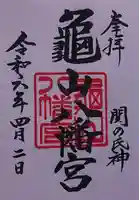 奉拝
関の氏神
龜山八幡宮
令和六年四月二日